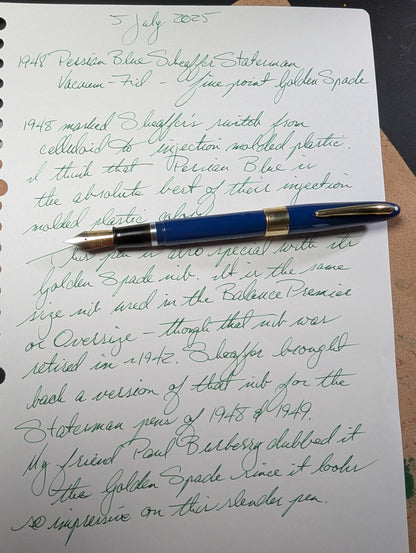 5 July 2025
1948 Persian Blue Sheaffer Statesman
Vacuum-Fil - fine point Golden Spade
1948 marked Sheaffer's switch from
celluloid to injection molded plastic.
I think that Persian Blue is
the absolute best of their injection
molded plastic colors.
This pen is also special with its
Golden Spade nib. It is the same
size nib used in the Balance Premier
or Oversize - though that nib was
retired in ~1942. Sheaffer brought
back a version of that nib for the
Statesman pens of 1948 & 1949.
My friend Paul dubbed it
the Golden Spade since it looks
so impressive on this slender pen.